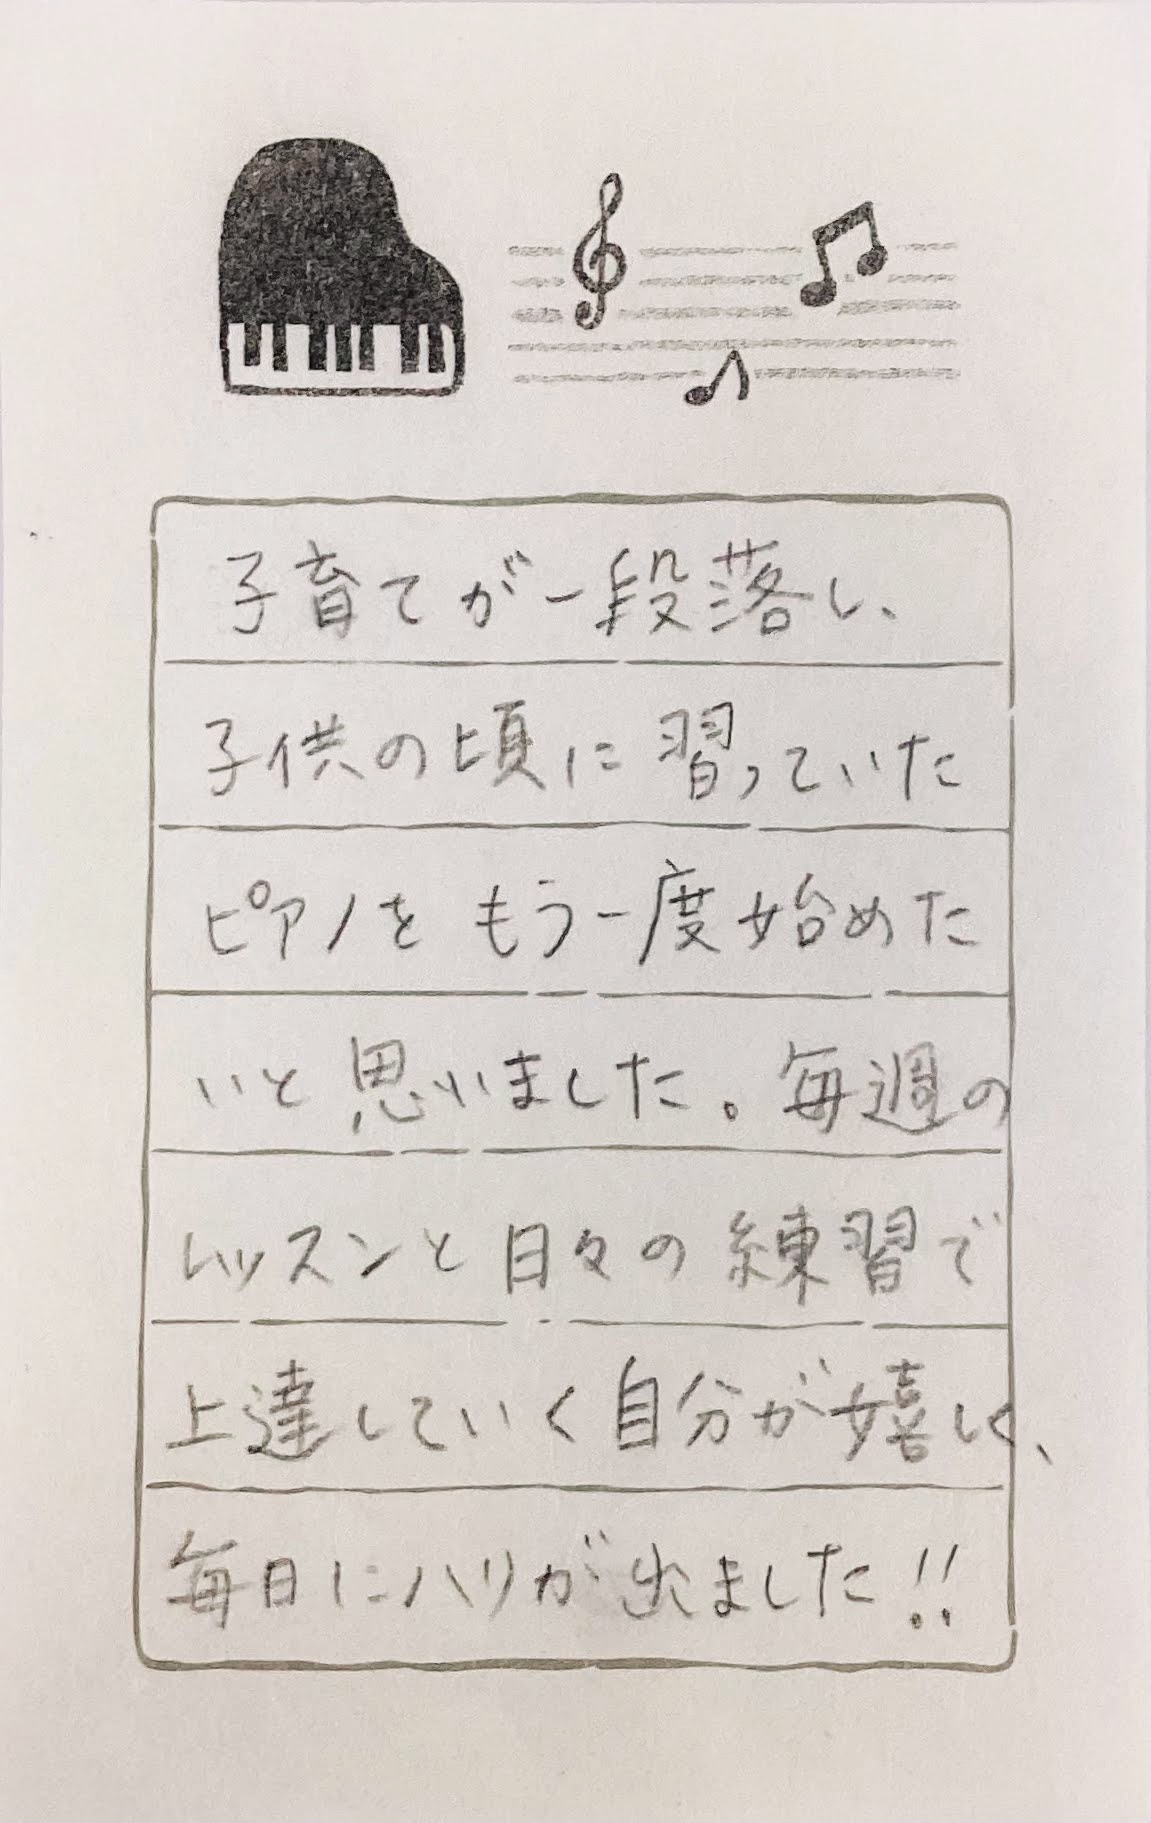 子育てが一段落し、
子供の頃に習っていた
ピアノをもう一度始めた
いと思いました。毎週の
レッスンと日々の練習で
上達していく自分が嬉しく、
毎日にハリが出ました!!